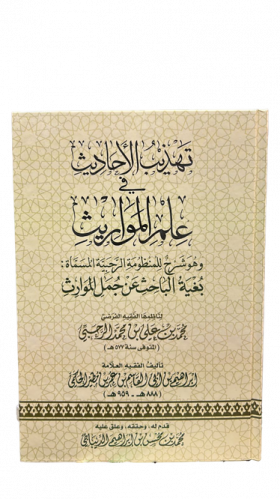 تهذيب الأحاديث
في
علم المواريث
وهو شرح للمنظومة الرحبية المسماة:
بغية الباحث عن جمل الموارث
لناظمها الفقيه الفرضي
محمد بن علي بن محمد الرحبي
(المتوفى سنة ٥٧٧ هـ)
تأليف الفقيه العلامة
إبراهيم بن أبي القاسم بن عمر بن مطير الحكمي
(٨٨٨ هـ - ٩٥٩ هـ)
قدم له، وحققه، وعلق عليه
محمد بن محسن بن إبراهيم